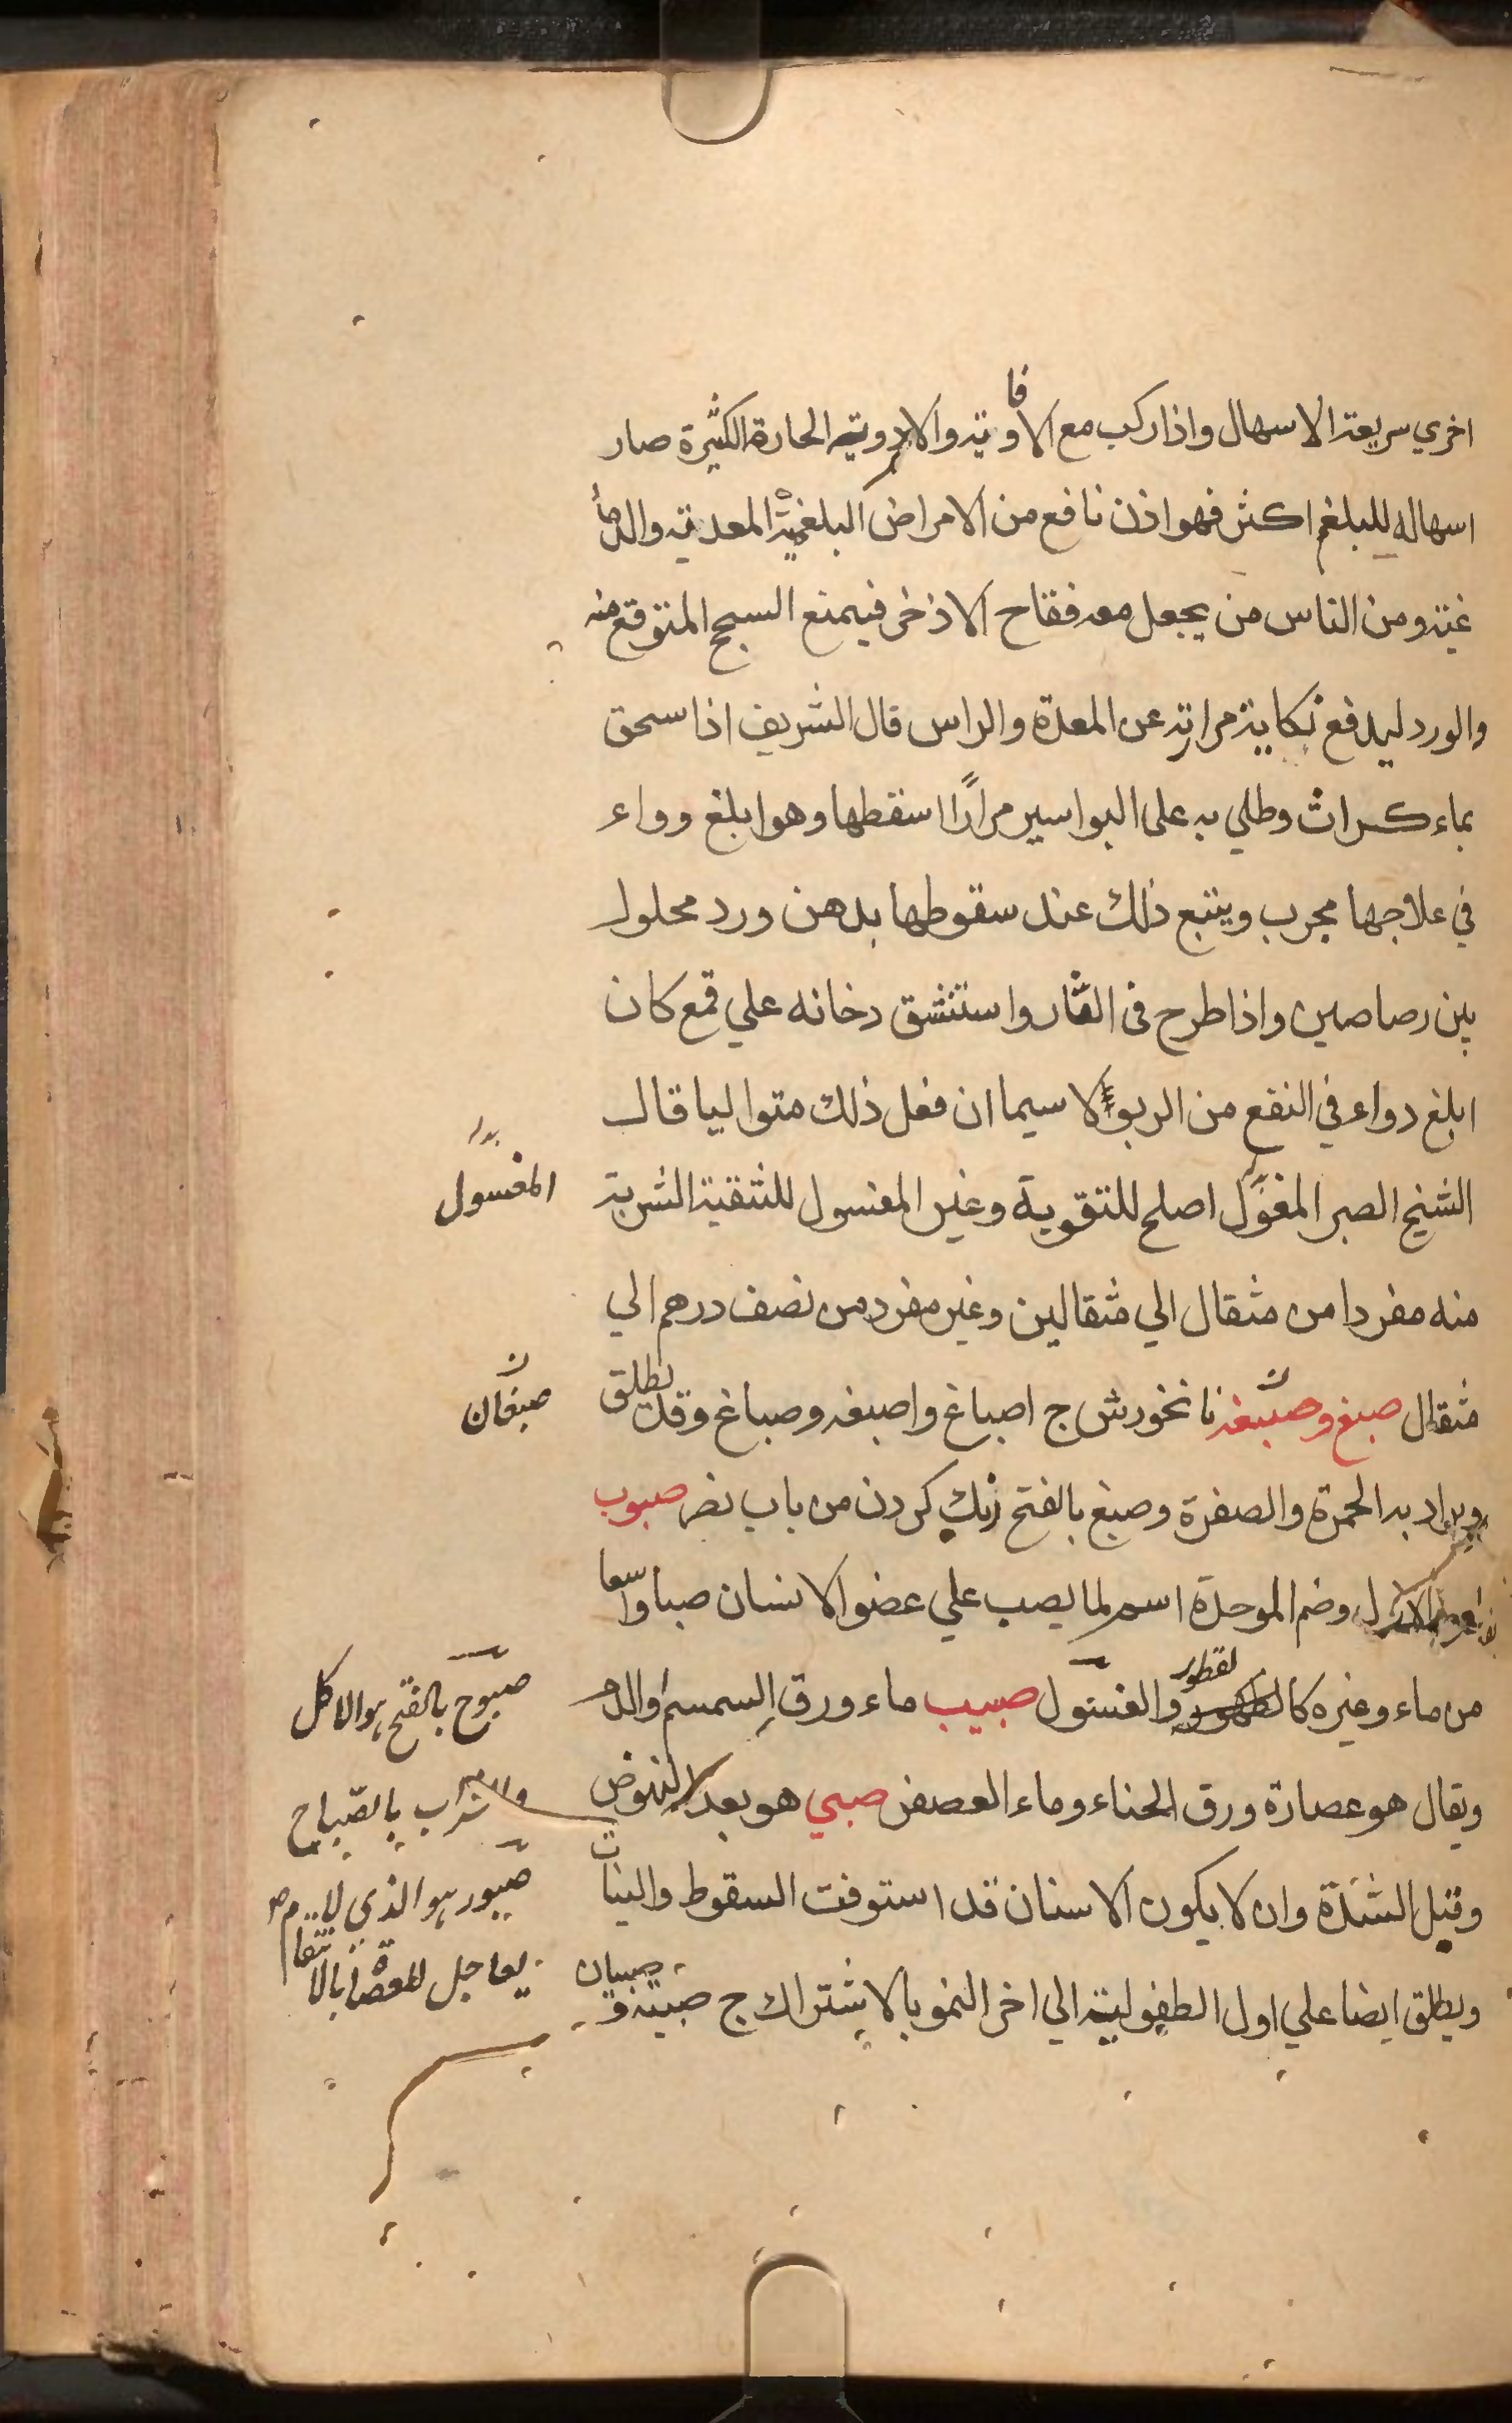 اخري سريعة الاسهال واذا ركب مع الافاوية والادوية الحارة الكثيرة صار
اسهاله للبلغم اكثر فهو اذن نافع من الامراض البلغمية المعدية والدما
غية ومن الناس من يجعل معه فقاح الاذخر فيمنع السحج المتوقع منه
والورد ليدفع نكاية مرارته عن المعدة والراس قال الشريف اذا سحق
بماء كراث وطلي به على البواسير مرارًا اسقطها وهو ابلغ دواء
في علاجها مجرب ويتبع ذلك عند سقوطها بدهن ورد محلول
بين رصاصين واذا طرح في النار واستنشق دخانه علي قمع كان
ابلغ دواء في النفع من الربو لا سيما ان فعل ذلك متواليا قال
الشيخ الصبر المغسول اصلح للتقوية وغير المغسول للتنقية الشربة
منه مفردا من مثقال الي مثقالين وغير مفرد من نصف درهم الي
مثقال صبغ وصبغة نانخورش ج اصباغ واصبغه وصباغ وقد تطلق
ويراد به الحمرة والصفرة وصبغ بالفتح زنك كردن من باب نصر صبوب
وضم الموحدة اسم لما يصب علي عضو الانسان صبا واسعا
من ماء وغيره كالقطور والغسول صبيب ماء ورق السمسم والدم
ويقال هو عصارة ورق الحناء وماء العصفر صبي هو بعد النهوض
وقبل الشدة وان لا يكون الاسنان قد استوفت السقوط والنبات
ويطلق ايضا علي اول الطفولية الي اخر النمو بالاشتراك ج صبية و صبيان
بدل
المغسول
صبغان
صبوح بالفتح هو الاكل
والشراب بالصباح
صبور هو الذي لا
يعاجل العصاة بالانتقام